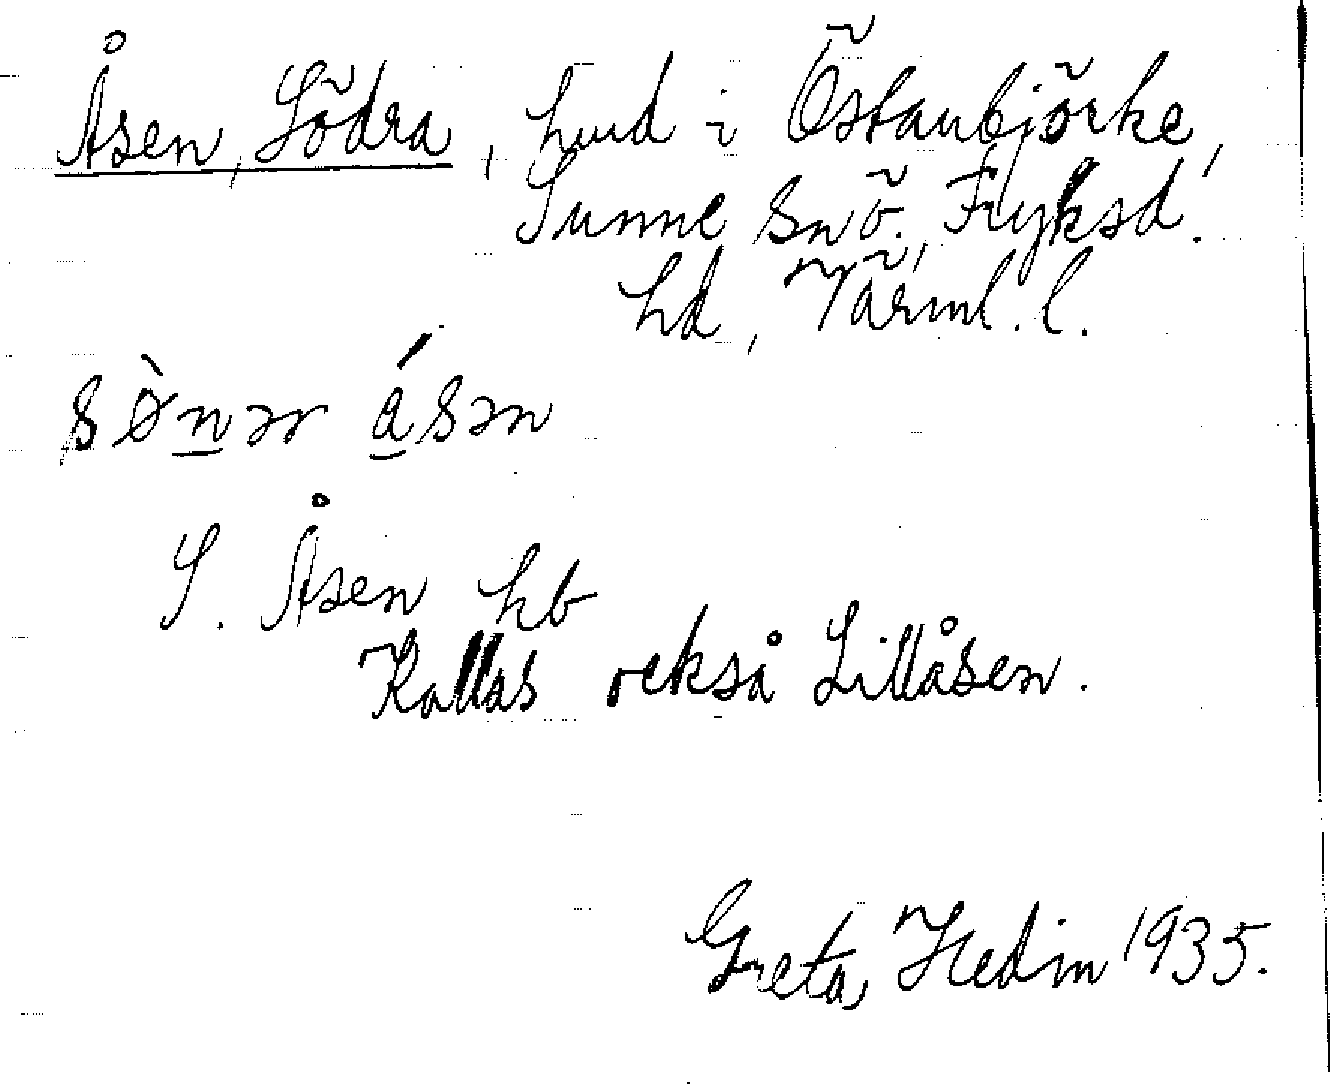 Åsen, Södra, hmd i Östanbjörke,
Sunne snö., Fryksd.
hd, Värml. l.
sø̀nər ásən
S. Åsen hb
Kallas också Lillåsen.
Greta Hedin 1935.